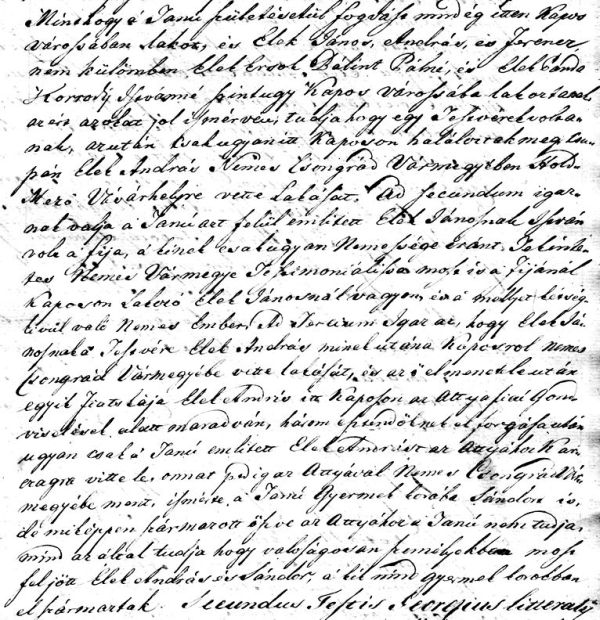 Minthogy a Tanú születésétül fogvást mind ég itten Kapos
várossában lakoz, és Elek János, András, és Ferencz,
nem külömben Elek Bálint Pálné, és Elek
Korrody Istvánné szintugy Kapos várossába laktanak
azért azokat jol ismérvén, tudja hogy egy Testvérek volta-
nak, azután Csak ugyan itt Kaposon haláloztak meg Csu-
pán Elek András Nemes Csongrád Vármegyében Hold-
Mező Vásárhelyre vette Lakását. Ad secundum igaz-
nak vallja a Tanú azt felül emlitett Elek Jánosnak István
volt a fija, a kinek csakugyan Nemessége eránt, Tekinte-
tes Nemes Vármegye Testimonialissa most is a fijánál
Kaposon Lakozó Elek Jánosnál vagyon, és a mellyet kétség-
kivül való Nemes Ember, Ad Tertium Igaz az, hogy Elek Já-
nosnak a Testvére Elek András minek utána Kaposrol Nemes
Csongrád Vármegyébe vitte lakását, és az ő elmenetele után
egyik Fiatskája Elek András itt Kaposon az Attyafiai Gond
viselések alatt maradván, három esztendőknek el forgása után
ugyan csak a Tanú emlitett Elek Andrást az Attyához Kar
czagra vitte le, onnat pedig az Attyával Nemes Csongrád Vár
megyébe ment, ismérte a Tanú Gyermek korába Sándort is,
de miképpen származott öszve az Attyához a Tanú nem tudja,
mind az által tudja hogy valoságosan személyekben most
fel jött Elek András és Sándor, a kik mind gyermek korokban
el származtak. Secundus Testis Georgius litteratý